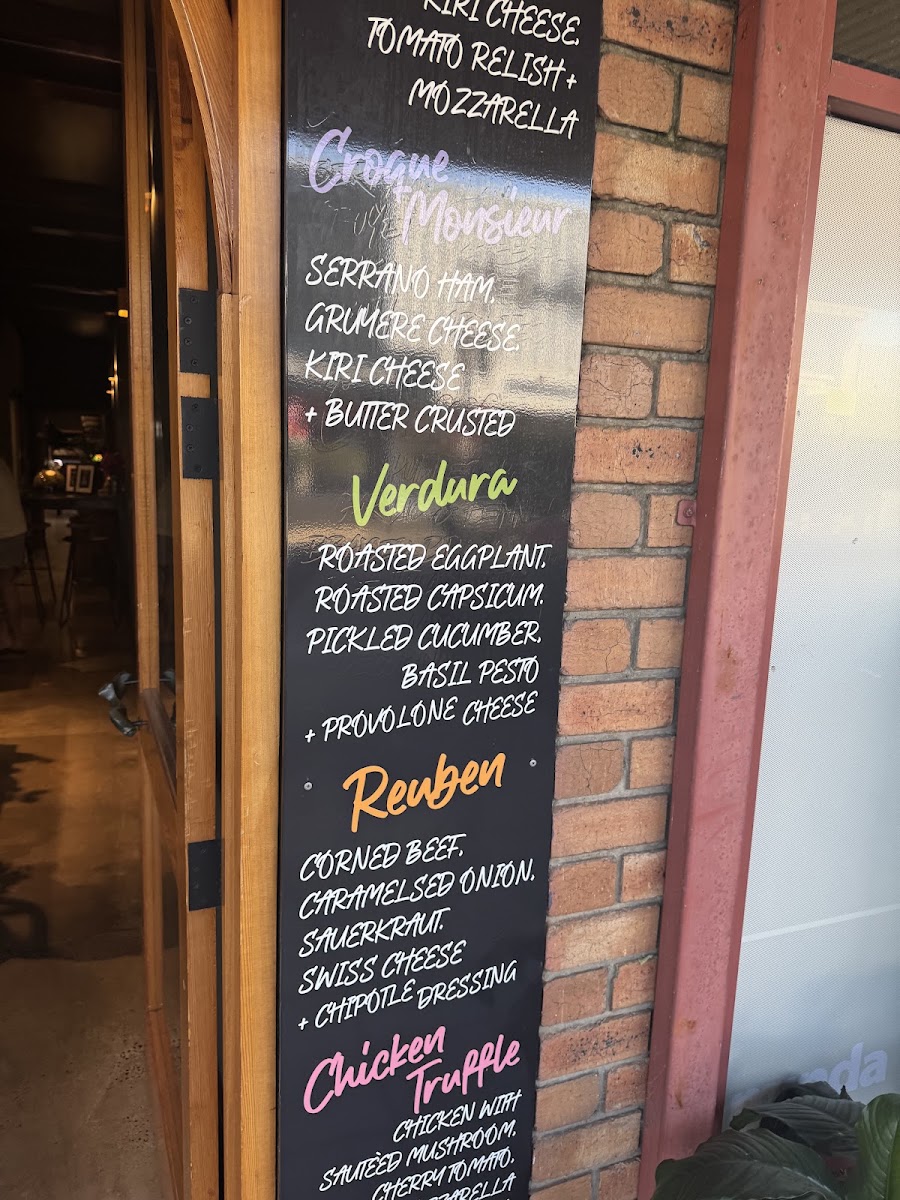 KIRI CHEESE,
TOMATO RELISH +
MOZZARELLA
Croque
Monsieur
SERRANO HAM,
GRUYERE CHEESE,
KIRI CHEESE
+ BUTTER CRUSTED
Verdura
ROASTED EGGPLANT,
ROASTED CAPSICUM,
PICKLED CUCUMBER,
BASIL PESTO
+ PROVOLONE CHEESE
Reuben
CORNED BEEF,
CARAMELSED ONION,
SAUERKRAUT,
SWISS CHEESE
+ CHIPOTLE DRESSING
Chicken
Truffle
CHICKEN WITH
SAUTÈED MUSHROOM,
CHERRY TOMATO,